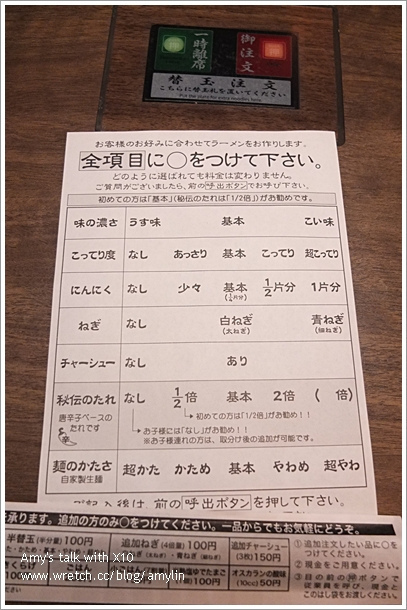 一時離席
御注文
替玉注文
こちらに替玉札を置いてください
お客様のお好みに合わせてラーメンをお作りします。
全項目に○をつけて下さい。
どのように選ばれても料金は変わりません。
ご質問がございましたら、前の呼出ボタンでお呼び下さい。
初めての方は「基本」(秘伝のたれは「1/2倍」)がお勧めです。
味の濃さ うす味 基本 こい味
こってり度 なし あっさり 基本 こってり 超こってり
にんにく なし 少々 基本 1/2片分 1片分
(1/4片分)
ねぎ なし 白ねぎ 青ねぎ
(太ねぎ) (細ねぎ)
チャーシュー なし あり
秘伝のたれ なし 1/2倍 基本 2倍 ( 倍)
唐辛子ベースの
たれです
辛
初めての方は「1/2倍」がお勧め!!
お子様には「なし」がお勧め!!
※お子様連れの方は、取分け後の追加が可能です。
麺のかたさ 超かた かため 基本 やわめ 超やわ
自家製生麺
ご記入後は、前の呼出ボタンを押して下さい。
承ります。追加の方のみ○をつけてください。一品からでもお気軽にどうぞ。
半替玉(半分量)100円
追加ねぎ(4倍量)100円
追加チャーシュー
(3枚)150円
オスカランの酸味
50円
① 追加注文したい品に○を
つけてください。
② 現金をご用意ください。
Amy's talk with X10
www.wretch.cc/blog/amylin